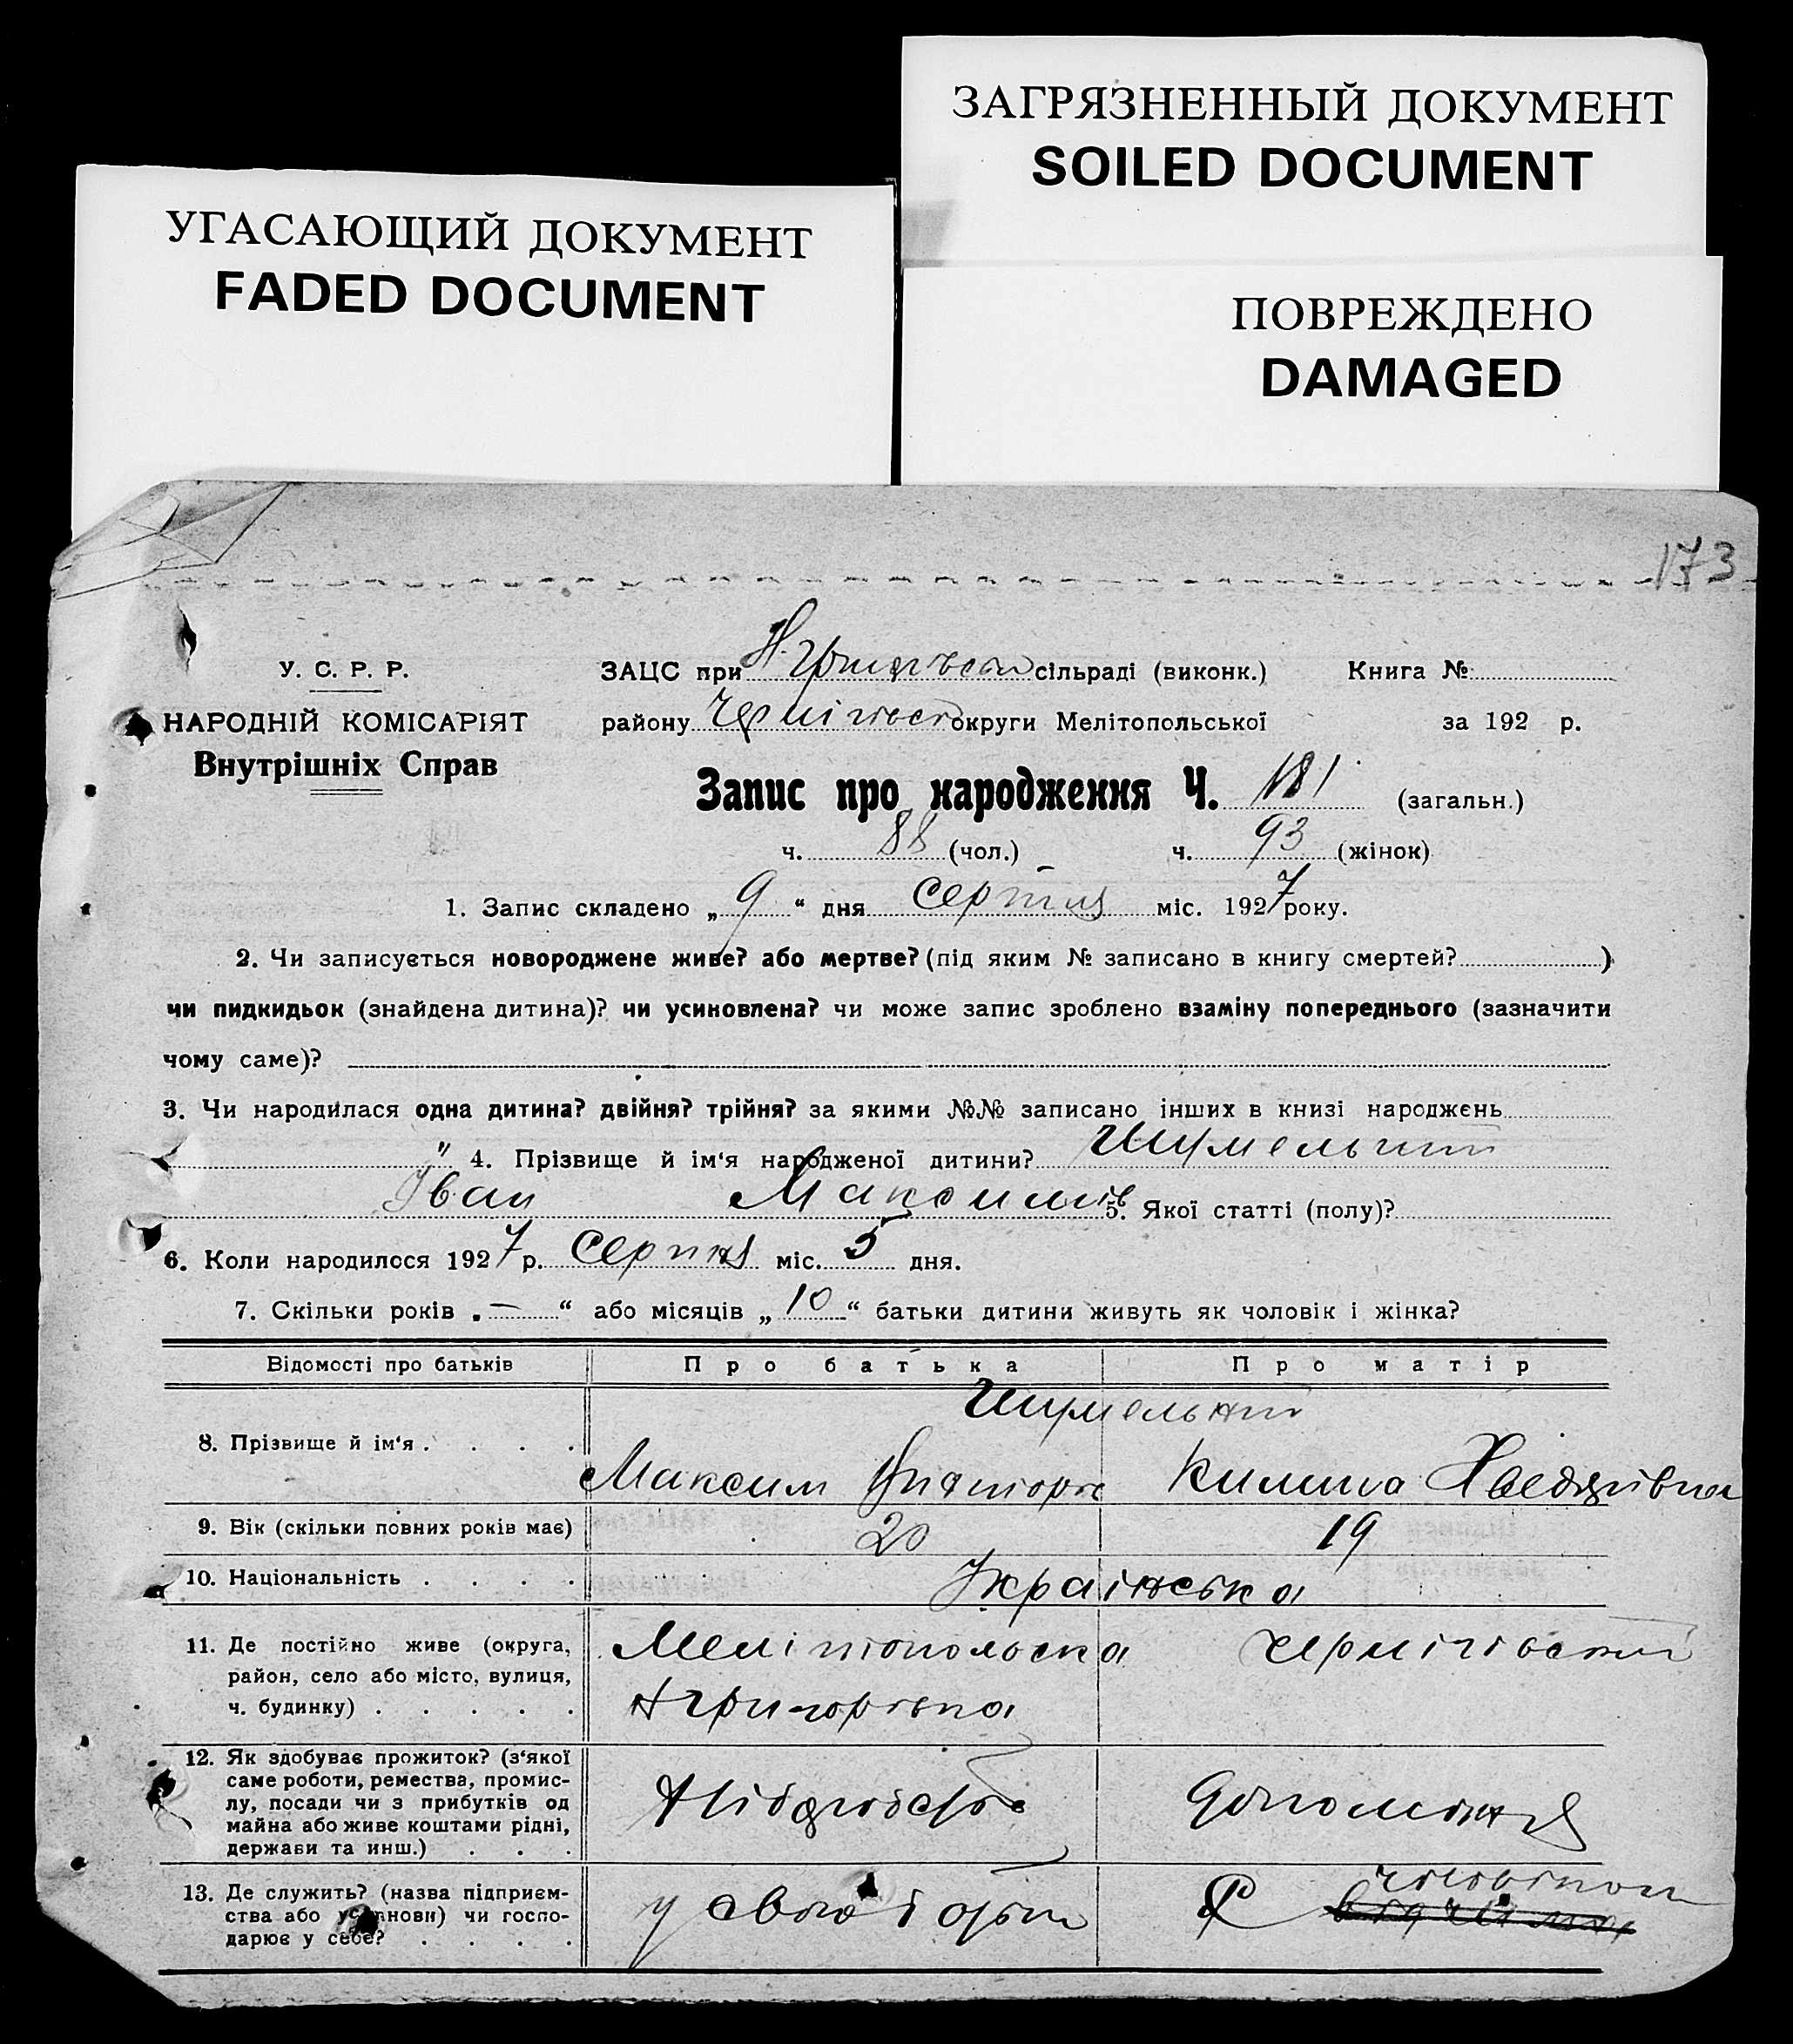 ЗАГРЯЗНЕННЫЙ ДОКУМЕНТ
SOILED DOCUMENT
УГАСАЮЩИЙ ДОКУМЕНТ
FADED DOCUMENT
ПОВРЕЖДЕНО
DAMAGED
173
У. С. Р. Р.
НАРОДНІЙ КОМІСАРІЯТ
Внутрішніх Справ
ЗАЦС при Н. сільраді (виконк.) Книга №
району округи Мелітопольської за 192 р.
Запис про народження Ч. 181 (загальн.)
ч. 88 (чол.) ч. 93 (жінок)
1. Запис складено „ 9 “ дня серпня міс. 1927 року.
2. Чи записується новороджене живе? або мертве? (під яким № записано в книгу смертей? )
чи пидкидьок (знайдена дитина)? чи усиновлена? чи може запис зроблено взаміну попереднього (зазначити
чому саме)?
3. Чи народилася одна дитина? двійня? трійня? за якими №№ записано інших в книзі народжень
" 4. Прізвище й ім‘я народженої дитини?
Іван Максимів 5. Якої статті (полу)?
6. Коли народилося 1927 р. Серпня міс. 5 дня.
7. Скільки років „ — “ або місяців „ 10 “ батьки дитини живуть як чоловік і жінка?
Відомості про батьків Про батька Про матір
8. Прізвище й ім‘я . . . .
Максим Килина
9. Вік (скільки повних років має) 20 19
10. Національність . . . . Українська
11. Де постійно живе (округа, Мелітопольська Чернігівський
район, село або місто, вулиця,
ч. будинку) . . . . . Н Григорівка
12. Як здобуває прожиток? (з‘якої
саме роботи, ремества, промис-
лу, посади чи з прибутків од
майна або живе коштами рідні,
держави та инш.) . . .
Хлібороб
13. Де служить? (назва підприєм-
ства або установи) чи госпо-
дарює у себе? . . . .
у свого